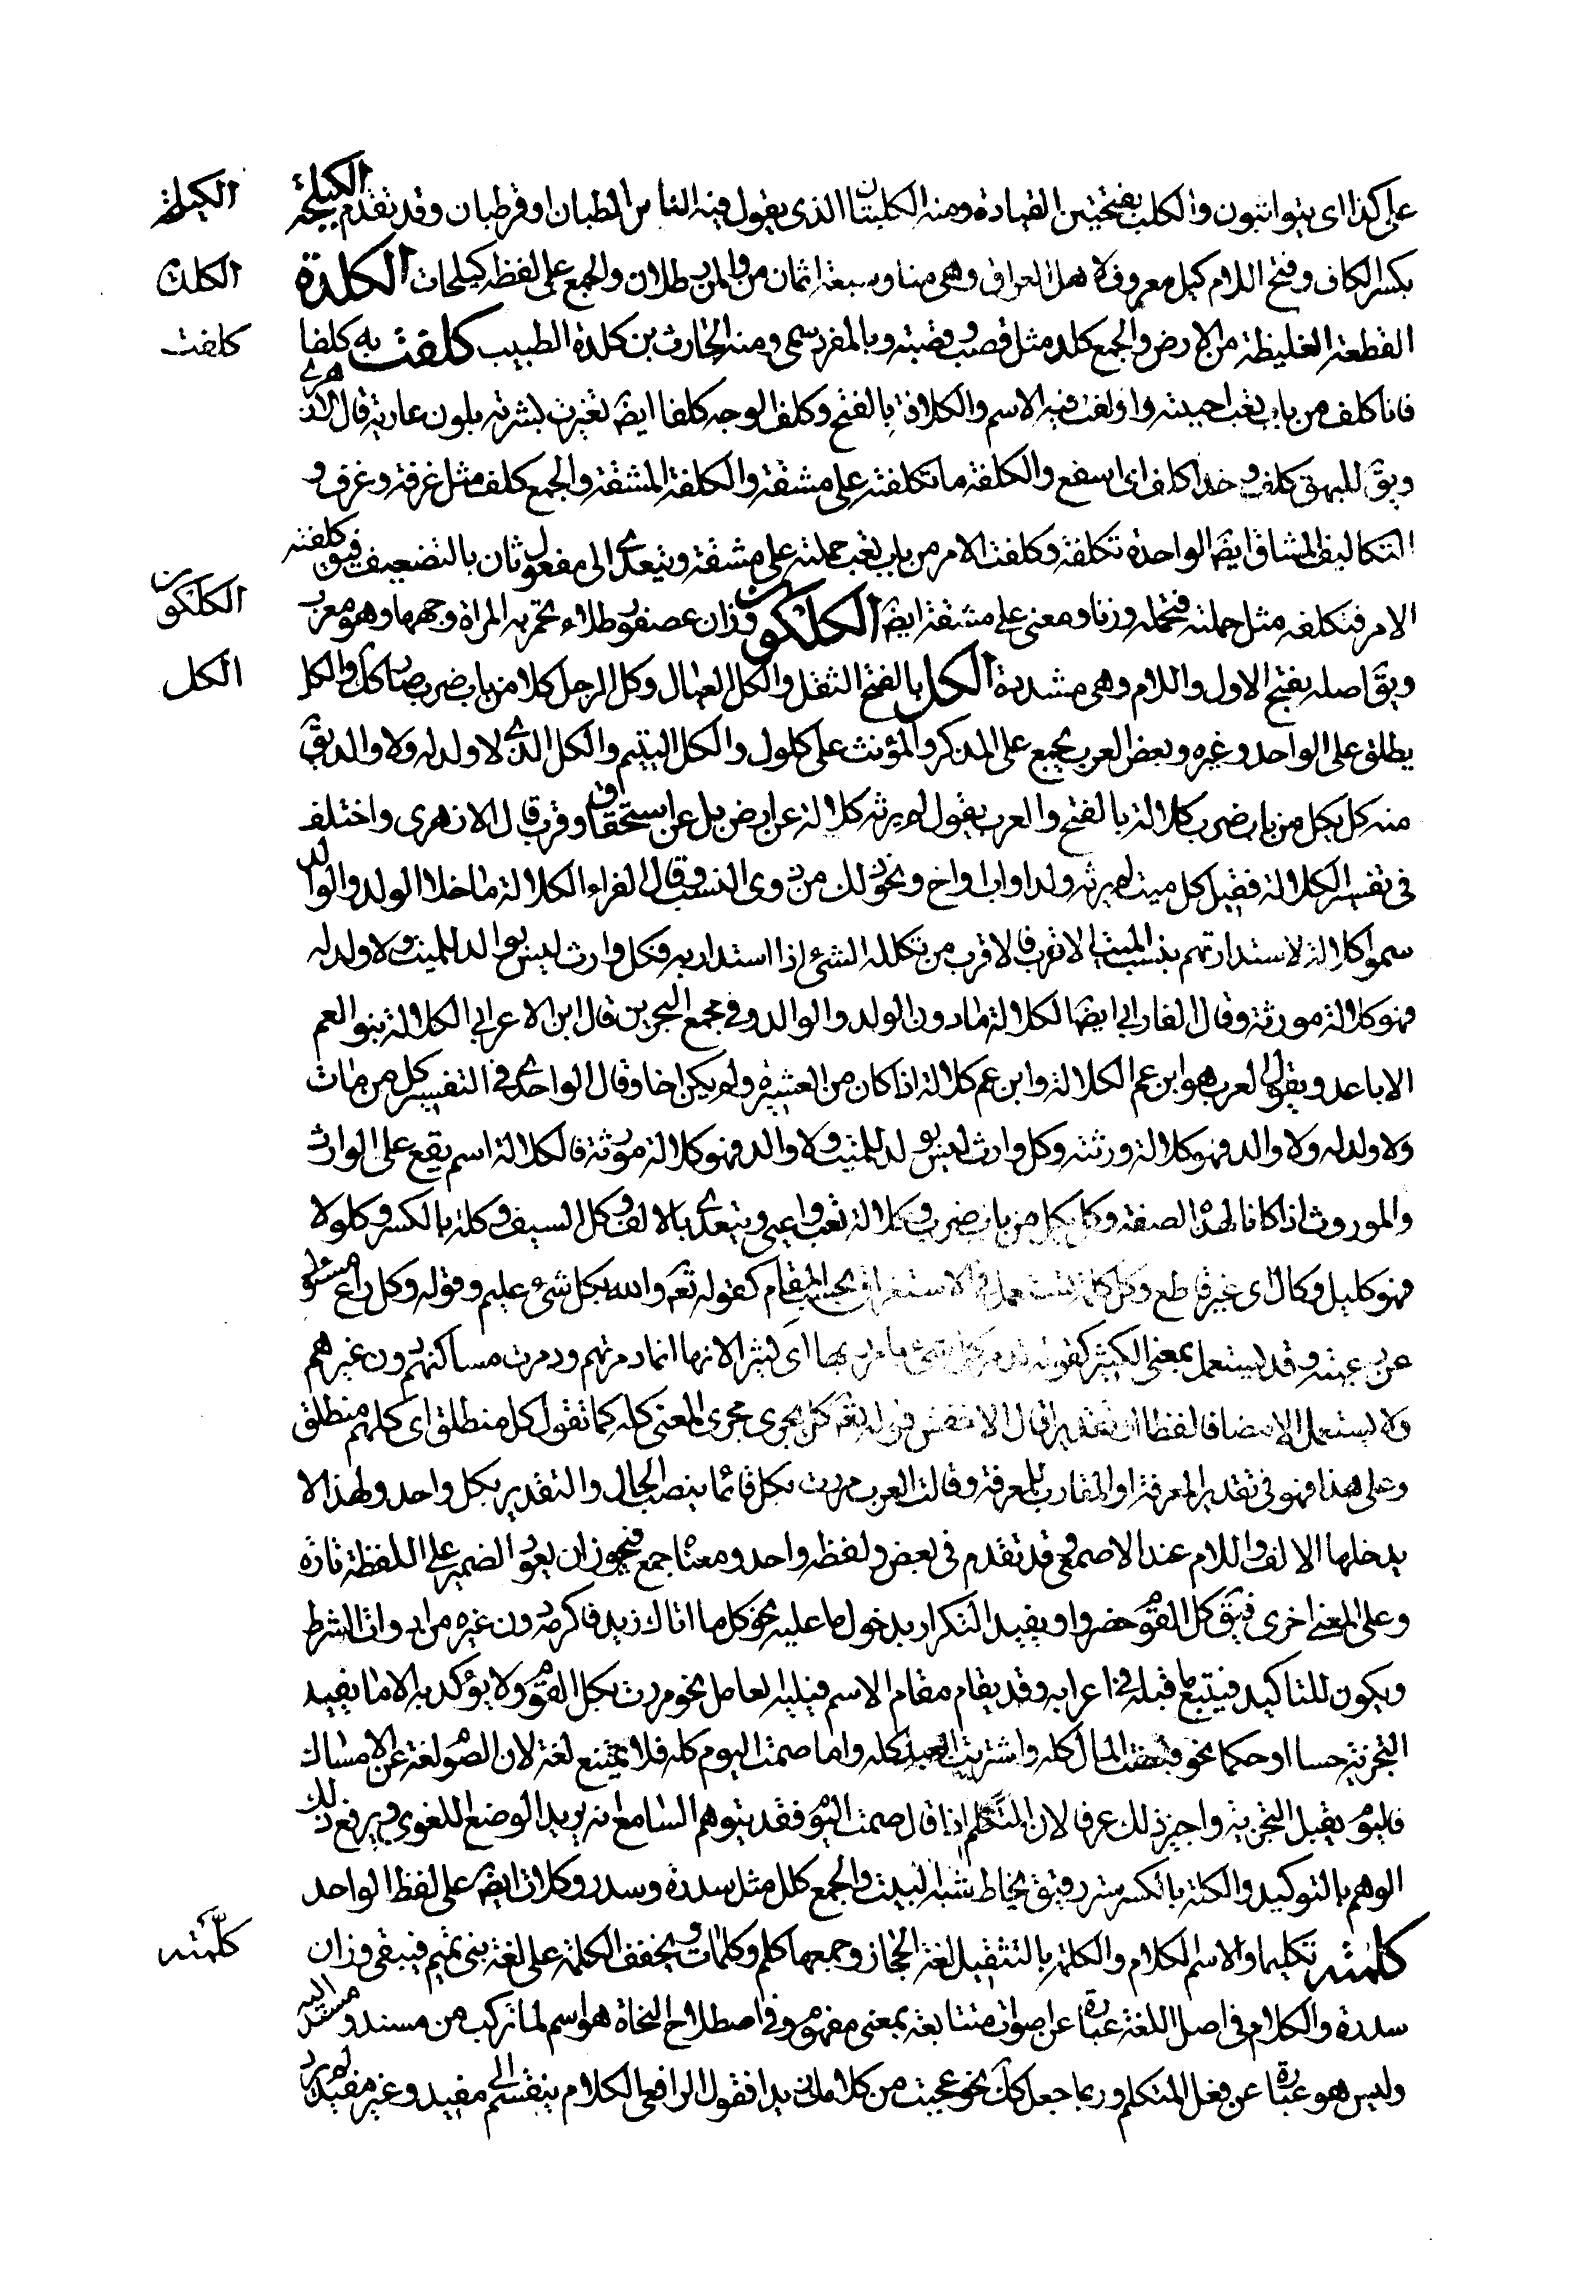 على كذا اى يتواثبون والكلب بفتحتين القيادة ومنه الكلبتان الذى يقول فيه الناس القلطبان او قرطبان وقد تقدم الكيلجة
الكيلجة
بكسر الكاف وفتح اللام كيل معروف لاهل العراق وهى منا وسبعة اثمان من والمن رطلان والجمع على لفظه كيلجات الكلدة
الكلدة
القطعة الغليظة من الارض والجمع كلد مثل قصب وقصبة وبالمفرد سمى ومنه الحارث بن كلدة الطبيب كلفت به كلفا
كلفت
فانا كلف من باب تعب احببته واولعت به الاسم والكلافة بالفتح وكلف الوجه كلفا ايضا تغيرت بشرته بلون عارية قال الازهرى
ويق للبهق كلف وخد اكلف اى اسفع والكلفة ما تكلفته على مشقة والكلفة المشقة والجمع كلف مثل غرفة وغرف و
التكاليف المشاق ايضا الواحدة تكلفة وكلفت الامر من باب تعب حملته على مشقة ويتعدى الى مفعول ثان بالتضعيف فيق كلفته
الامر فتكلفه مثل حملته فتحمله وزنا ومعنى على مشقة ايضا الكلكون وزان عصفور طلاء تحمر به المراة وجهها وهو معرب
الكلكون
ويق اصله بفتح الاول واللام وهى مشددة الكل بالفتح الثقل والكل العيال وكل الرجل كلا من باب ضرب صار كل والكل
الكل
يطلق على الواحد وغيره وبعض العرب يجمع على المذكر والمؤنث على كلول والكل اليتيم والكل الذى لا ولد له ولا والد يق
منه كل يكل من باب ضرب كلالة بالفتح والعرب يقول لم يرثه كلالة عن ارض بل عن استحقاق وقرب قال الازهرى واختلف
فى تفسير الكلالة فقيل كل ميت لم يرثه ولد او اب او اخ ونحو ذلك من ذوى النسب وقال الفراء الكلالة ما خلا الولد والوالد
سموا كلالة لاستدارتهم بنسب الميت الاقرب فالاقرب من تكلله الشئ اذا استدار به فكل وارث ليس بوالد للميت ولا ولد له
فهو كلالة مورثة وقال الفارابى ايضا الكلالة مادون الولد والوالد وفى مجمع البحرين قال ابن الاعرابى الكلالة بنو العم
الاباعد ويقول العرب هو ابن عم الكلالة وابن عم كلالة اذا كان من العشيرة ولم يكن اخا وقال الواحدى فى التفسير كل من مات
ولا ولد له ولا والد فهو كلالة ورثته وكل وارث ليس بولد للميت ولا والد فهو كلالة مورثة فالكلالة اسم يقع على الوارث
والموروث اذا كانا بهذه الصفة وكل يكل من باب ضرب وكلالة تعب واعيى ويتعدى بالالف وكل السيف وكلة بالكسر وكلولا
فهو كليل وكال اى غير قاطع وكل كلمة تستعمل فى الاستغراق بحسب المقام كقوله تعه والله بكل شئ عليم وقوله وكل راع مسئول
عن رعيته وقد يستعمل بمعنى الكثير كقوله تدمر كل شئ بامر ربها اى كثيرا لانها انما دمرتهم ودمرت مساكنهم دون غيرهم
ولا يستعمل الا مضافا لفظا او تقديرا قال الاخفش قوله تعه كل يجرى مجرى المعنى كله كما تقول كل منطلق اى كلهم منطلق
وعلى هذا فهو فى تقدير المعرفة او المقارب للمعرفة وقالت العرب مررت بكل قائما بنصب الحال والتقدير بكل واحد ولهذا لا
يدخلها الالف واللام عند الاصمعى وقد تقدم فى بعض ولفظه واحد ومعناه جمع فيجوز ان يعود الضمير على اللفظة تارة
وعلى المعنى اخرى فيق كل القوم حضروا ويفيد التكرار بدخول ما عليه نحو كل ما اتاك زيد فاكرمه دون غيره من ادوات الشرط
ويكون للتاكيد فيتبع ما قبله فى اعرابه وقد يقام مقام الاسم فيليه العامل نحو مررت بكل القوم ولا يؤكد به الا ما يفيد
التجزئة حسا او حكما نحو قبضت المال كله واشتريت العبد كله واما صمت اليوم كله فلا يمتنع لغة لان الصوم لغة عن الامساك
فاليوم يقبل التجزئة واجيز ذلك عرفا لان المتكلم اذا قال صمت اليوم فقد يتوهم السامع انه يريد الوضع اللغوى ويرفع ذلك
الوهم بالتوكيد والكلة بالكسر ستر رقيق يخاط شبه البيت والجمع كلل مثل سدرة وسدر وكلات ايضا على لفظ الواحد
كلمته تكليما والاسم الكلام والكلمة بالتثقيل لغة الحجاز وجمعها كلم وكلمات ويخفف الكلمة على لغة بنى تميم فيبقى وزان
كلمته
سدرة والكلام فى اصل اللغة عبارة عن اصوات متتابعة بمعنى مفهوم وفى اصطلاح النحاة هو اسم لما تركب من مسند ومسند اليه
وليس هو عبارة عن فعل المتكلم وربما جعل كذلك نحو عجبت من كلامك زيدا فقول الرافعى الكلام ينقسم الى مفيد وغير مفيد لم يرد